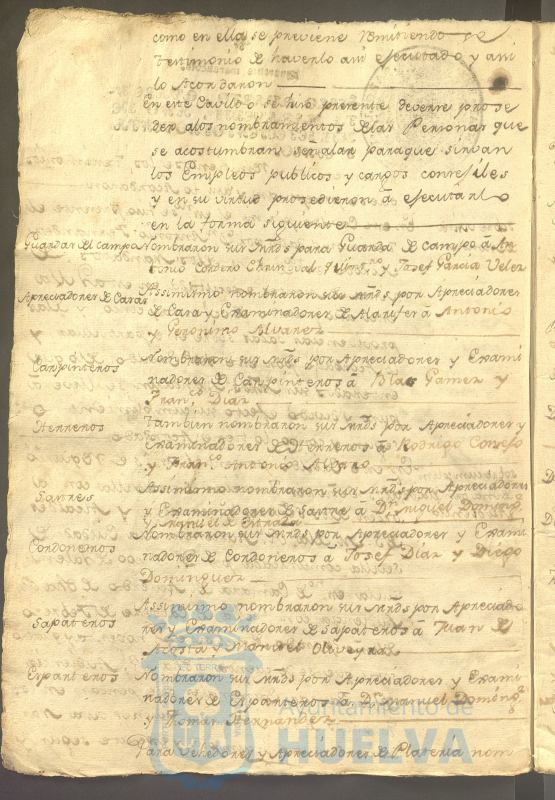 como en ella se previene Remitiendo se
Testimonio de haverlo asi ejecutado y asi
lo Acordaron
En este Cavildo se hiso presente deverse prose
der a los nombramientos de las Personas que
se acostumbran señalar para que sirvan
los Empleos publicos y cargos consejiles
y en su virtud prosedieron a ejecutarlo
en la forma siguiente
Guardas del campo Nombraron sus Mrds para Guarda de campo a An
tonio Cordero y Josef Garcia Velez
Apreciadores de Casas Assimismo nombraron sus Mrds por Apreciadores
de Casa y Examinadores de Alarifes a Antonio
y Geronimo Alvarez
Carpinteros Nombraron sus Mrds por Apreciadores y Exami
nadores de Carpinteros a Blas Gamez y
Franco Diaz
Herreros Tambien nombraron sus Mrds por Apreciadores y
Examinadores de Herreros a Rodrigo Consejo
y Franco Antonio
Sastres Assimismo nombraron sus Mrds por Apreciadores
y Examinadores de Sastre a Dn Miguel Doming
y Manuel de Estrada
Cordoneros Nombraron sus Mrds por Apreciadores y Exami
nadores de Cordoneros a Josef Diaz y Diego
Dominguez
Sapateros Assimismo nombraron sus Mrds por Apreciado
res y Examinadores de Sapateros a Juan de
Acosta y Manuel Oliveyra
Esparteros Nombraron sus Mrds por Apreciadores y Exami
nadores de Esparteros a Dn Manuel Domingz
y Tomas Hernandez
Para Vehedores y Apreciadores de Plateria nom
Ayuntamiento de
HUELVA